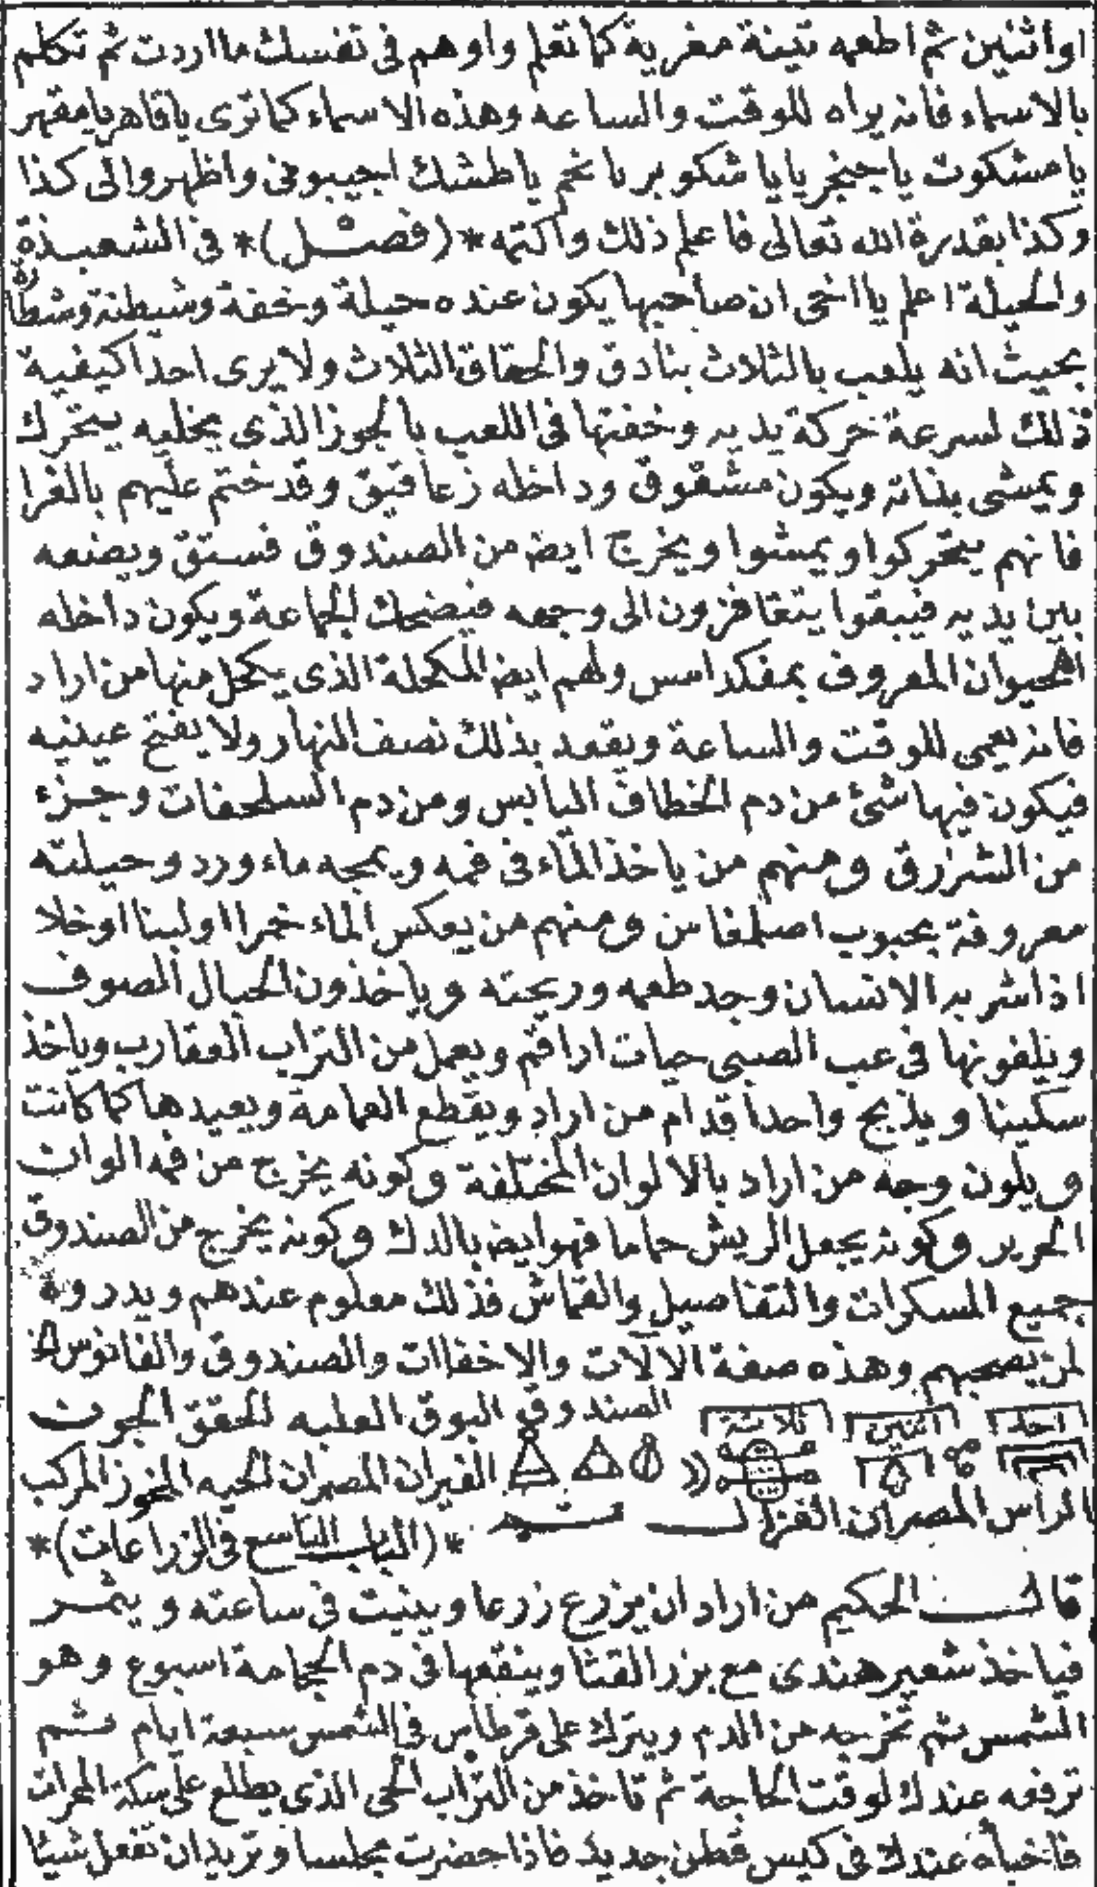 او اثنين ثم اطعمه تينة مغرية كما تعلم واوهم فى نفسك ما اردت ثم تكلم
بالاسماء فانه يراه للوقت والساعه وهذه الاسماء كما ترى ياقاهر يامقهر
يا مشكوت يا جنجر يايا شكو بر يا نخم يا طشك اجيبونى واظهروا لى كذا
وكذا بقدرة الله تعالى فاعلم ذلك واكتمه *(فصل)* فى الشعبذة
والحيلة اعلم يا اخى ان صاحبها يكون عنده حيلة وخفة وشيطنة وشطارة
بحيث انه يلعب بالثلاث بنادق والحقاق الثلاث ولا يرى احدا كيفية
ذلك لسرعة حركة يديه وخفتها فى اللعب بالجوز الذى يخليه يتحرك
ويمشى بذاته ويكون مشقوق وداخله زعاقيق وقد ختم عليهم بالغرا
فانهم يتحركوا ويمشوا ويخرج ايضا من الصندوق فستق ويضعه
بين يديه فيبقوا يتقافزون الى وجهه فيضحك الجماعة ويكون داخله
الحيوان المعروف بمفكداسس ولهم ايضا المكحلة الذى يكحل منها من اراد
فانه يعمى للوقت والساعة ويقعد بذلك نصف النهار ولا يفتح عينيه
فيكون فيها شئ من دم الخطاف اليابس ومن دم السلحفات وجزء
من الشزرق ومنهم من ياخذ الماء فى فمه ويمجه ماء ورد وحيلته
معروفة بحبوب اصلمفاس ومنهم من يعكس الماء خمرا او لبنا او خلا
اذا شربه الانسان وجد طعمه وريحته وياخذون الحبال الصوف
ويلفونها فى عب الصبى حيات اراقم ويعمل من التراب العقارب وياخذ
سكينا ويذبح واحدا قدام من اراد ويقطع العمامة ويعيدها كما كانت
ويلون وجه من اراد بالالوان المختلفة وكونه يخرج من فمه الوان
الحرير وكونه يجعل الريش حماما فهو ايضا بالدك وكونه يخرج من الصندوق
جميع المسكرات والتفاصيل والقماش فذلك معلوم عندهم ويدروه
لمن يصحبهم وهذه صفة الآلات والاخفاات والصندوق والفانوس
احد اثنين ثلاثة الصندوق البوق العلبه الحقق الجون
الفيران المصران الحيه الخوز المركب
الراس المصران الغزال تمت *(الباب التاسع فى الزراعات)*
قال الحكيم من اراد ان يزرع زرعا وينبت فى ساعته ويثمر
فياخذ شعير هندى مع بزر القثا وينقعها فى دم الحجامة اسبوع وهو
الشمس ثم تخرجه من الدم ويترك على قرطاس فى الشمس سبعة ايام ثم
ترفعه عندك لوقت الحاجة ثم تاخذ من التراب الحى الذى يطلع على سكة المحراث
فاخبأه عندك فى كيس قطن جديد فاذا حضرت مجلسا وتريد ان تفعل شيئا